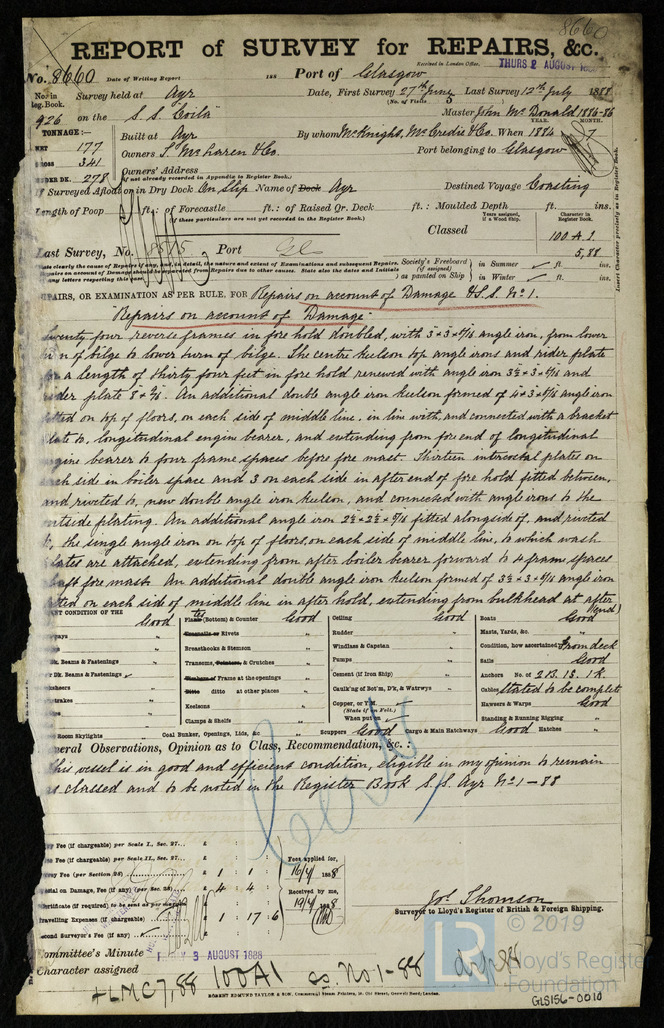 8660
REPORT of SURVEY for REPAIRS, &c.
Received in London Office. THURS 2 AUGUST 188
No. 8660 Date of Writing Report 188 Port of Glasgow
No. in Reg. Book. Survey held at Ayr Date, First Survey 27th June Last Survey 12th July 1888
(No. of Visits 5
926 on the S.S. Coila Master John McDonald 1886-86
TONNAGE:— Built at Ayr By whom McKnight, McCredie & Co. When 1884 YEAR. MONTH. 7
NET 177 Owners S. McLaren & Co. Port belonging to Glasgow
GROSS 341 Owners' Address
UNDER DK. 278 (if not already recorded in Appendix to Register Book.)
If Surveyed Afloat or in Dry Dock On Slip Name of Dock Ayr Destined Voyage Coasting
Length of Poop ft.: of Forecastle ft.: of Raised Qr. Deck ft.: Moulded Depth ft. ins.
(If these particulars are not yet recorded in the Register Book.)
Years assigned, if a Wood Ship. Character in Register Book.
Classed 100 A.1.
5,88
Last Survey, No. 8575 Port
State clearly the cause of Repairs if any, and, in detail, the nature and extent of Examinations and subsequent Repairs.
Repairs on account of Damage should be separated from Repairs due to other causes. State also the dates and Initials
any letters respecting this case
Society's Freeboard (if assigned) as painted on Ship in Summer ft. ins.
in Winter ft. ins.
Insert Character precisely as in Register Book.
REPAIRS, OR EXAMINATION AS PER RULE, FOR Repairs on account of Damage & S.S. No 1.
"Repairs on account of Damage"
Twenty four reverse frames in fore hold doubled, with 3 × 3 × 6/16 angle iron, from lower
turn of bilge to lower turn of bilge. The centre keelson top angle irons and rider plate
for a length of thirty four feet in fore hold renewed with angle iron 3½ × 3 × 6/16 and
rider plate 8 × An additional double angle iron keelson formed of 4 × 3 × 6/16 angle iron
fitted on top of floors, on each side of middle line, in line with, and connected with a bracket
plate to, longitudinal engine bearer, and extending from fore end of longitudinal
engine bearer to four frame spaces before fore mast. Thirteen intercostal plates on
each side in boiler space and 3 on each side in after end of fore hold fitted between,
and riveted to, new double angle iron keelson, and connected with angle irons to the
outside plating. An additional angle iron 2½ × 2½ × 5/16 fitted alongside of, and riveted
to, the single angle iron on top of floors, on each side of middle line, to which wash
plates are attached, extending from after boiler bearer forward to 4 frame spaces
abaft fore mast. An additional double angle iron keelson formed of 3½ × 3 × 6/16 angle iron
fitted on each side of middle line in after hold, extending from bulkhead at after
end)
CONDITION OF THE
Good Plates (Bottom) & Counter Good Ceiling Good Boats Good
" Treenails or Rivets " Rudder " Masts, Yards, &c. "
" Breasthooks & Stemson " Windlass & Capstan " Condition, how ascertained From deck
Dk. Beams & Fastenings " Transoms, Pointers, & Crutches " Pumps " Sails Good
Dk. Beams & Fastenings Frame at the openings " Cement (if Iron Ship) " Anchors No. of 2 B. 1 S. 1 K.
Ditto ditto at other places " Caulk'ng of Bot'm, D'k, & Waterw'ys " Cables stated to be complete
Keelsons " Copper, or Y.M. Hawsers & Warps Good
(State if on Felt.)
Clamps & Shelfs " When put on Standing & Running Rigging "
Room Skylights " Coal Bunker, Openings, Lids, &c " Scuppers Good Cargo & Main Hatchways Good Hatches "
General Observations, Opinion as to Class, Recommendation, &c. :
This vessel is in good and efficient condition, eligible in my opinion to remain
as classed and to be noted in the Register Book S.S. Ayr No 1 — 88
Fee (if chargeable) per Scale I., Sec. 27... £ : :
Fee (if chargeable) per Scale II., Sec. 27... £ : : Fees applied for,
Fee (Section 28) £ 1 : 1 : 16/7 1888
Special on Damage, Fee (if any) (per Sec. 28) £ 4 : 4 : Received by me,
Certificate (if required) to be sent as per margin 19/7 1888
Travelling Expenses (if chargeable) £ 1 : 17 : 6
Second Surveyor's Fee (if any) £ : :
Jos. Thomson
Surveyor to Lloyd's Register of British & Foreign Shipping.
Committee's Minute 3 AUGUST 1888
Character assigned 100A1 ss. No 1-88
+LMC 7,88
ROBERT EDMUND TAYLOR & SON, Commercial Steam Printers, 19, Old Street, Goswell Road, London.
© 2019
LR Lloyd's Register
Foundation
GLS156-0010